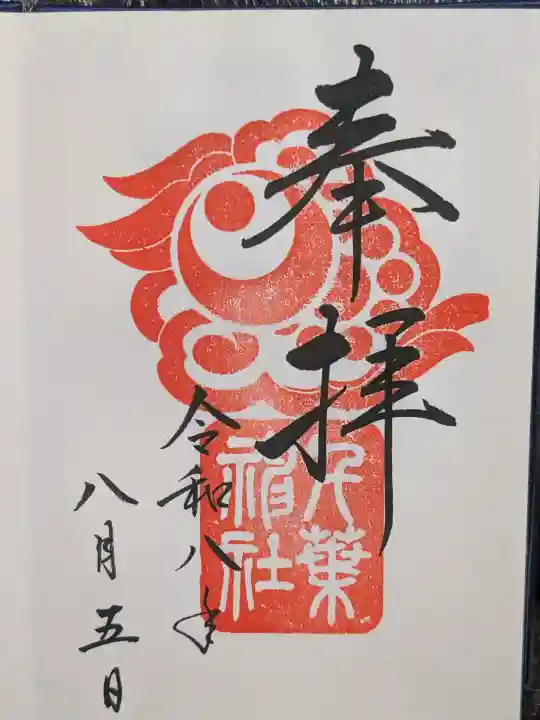 奉拝
千葉
神社
令和八年
八月五日